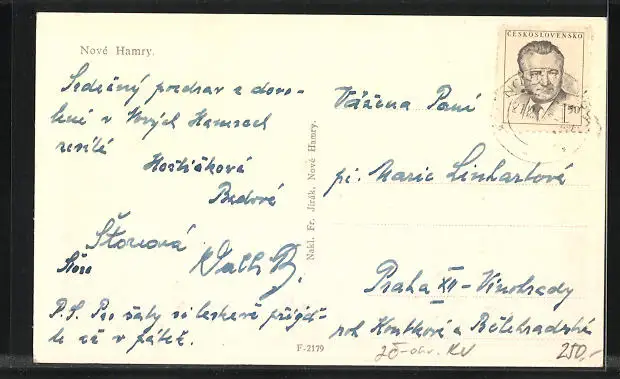 Nové Hamry.
Srdečný pozdrav z dovo-
lené v Nových Hamrech
zasílá
Hostičková
Štorová
P.S. Pro šaty si laskavě přijď-
te až v pátek.
Nakl. Fr. Jirák, Nové Hamry.
F-2179
ČESKOSLOVENSKO
1.50
Vážená Paní
pí. Marie Linhartová
Praha XII - Vinohrady
roh Koubkové a Bělehradské
250,-